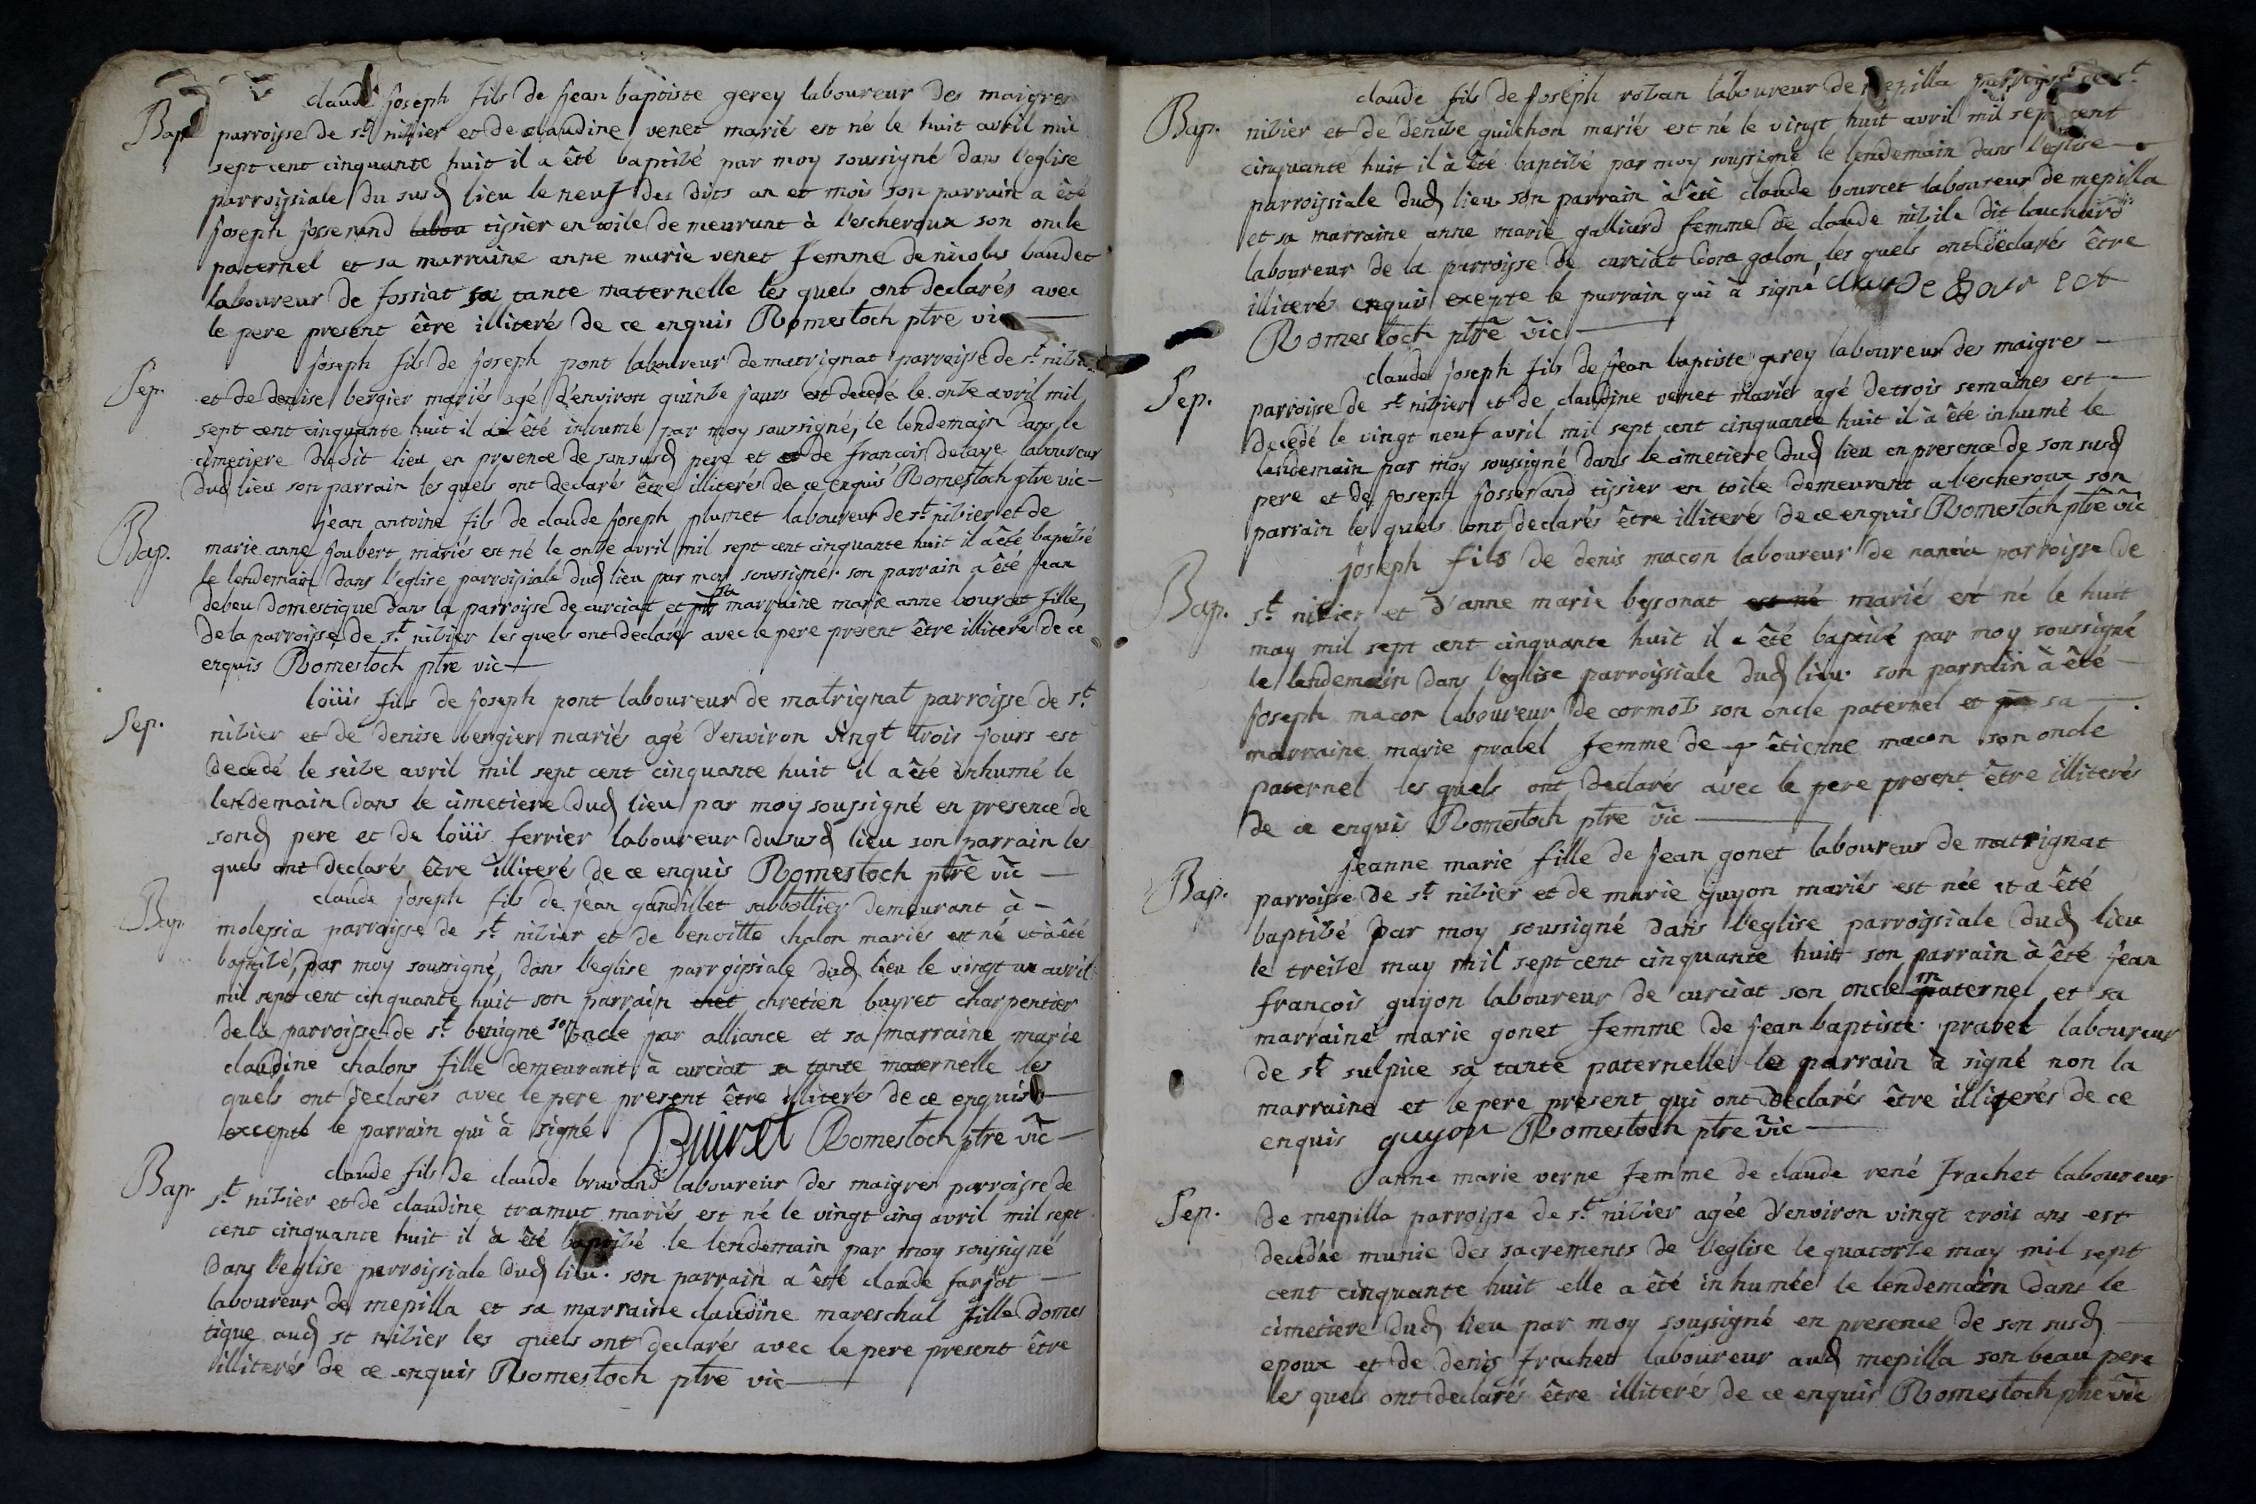 Bap. claude joseph fils de jean baptiste gerey laboureur des maigres
parroisse de st nizier et de claudine venet marié est né le huit avril mil
sept cent cinquante huit il a êté baptizé par moy soussigné dans l'eglise
parroissiale du susd lieu le neuf des dits an et mois son parrain a êté
joseph josserand labou tissier en toile demeurant à l'escheroux son oncle
paternel et sa marraine anne marie venet femme de nicolas baudet
laboureur de fossiat sa tante maternelle les quels ont declarés avec
le pere present être illiterés de ce enquis Romestoch ptre vic
Sep. joseph fils de joseph pont laboureur de matrignat parroisse de st nizier
et de denise bergier mariés agé d'environ quinze jours est decedé le onze avril mil
sept cent cinquante huit il a êté inhumé par moy soussigné, le lendemain dans le
cimetiere dudit lieu en presence de son susd pere et et de francois delaye laboureur
dud lieu son parrain les quels ont declarés être illiterés de ce enquis Romestoch ptre vic
Bap. jean antoine fils de claude joseph plumet laboureur de st nizier et de
marie anne joubert mariés est né le onze avril mil sept cent cinquante huit il a êté baptizé
le lendemain dans l'eglise parroissiale dud lieu par moy soussigné. son parrain a êté jean
debeu domestique dans la parroisse de curciat et sa marraine marie anne bourcet fille
de la parroisse de st nizier les quels ont declarés avec le pere present être illiterés de ce
enquis Romestoch ptre vic
Sep. loüis fils de joseph pont laboureur de matrignat parroisse de st
nizier et de denise bergier mariés agé d'environ vingt trois jours est
decedé le seize avril mil sept cent cinquante huit il a êté inhumé le
lendemain dans le cimetiere dud lieu par moy soussigné en presence de
sond pere et de loüis ferrier laboureur du susd lieu son parrain les
quels ont declarés être illiterés de ce enquis Romestoch ptre vic
Bap. claude joseph fils de jean gandillet sabbottier demeurant à
molessia parroisse de st nizier et de benoitte chalon mariés est né et à êté
baptizé, par moy soussigné, dans l'eglise parroissiale dud lieu le vingt un avril
mil sept cent cinquante huit son parrain chet chretien buyret charpentier
de la parroisse de st benigne son oncle par alliance et sa marraine marie
claudine chalons fille demeurant à curciat sa tante maternelle les
quels ont declarés avec le pere present être illiterés de ce enquis
excepté le parrain qui à signé Buiret Romestoch ptre vic
Bap. claude fils de claude bruvand laboureur des maigres parroisse de
st nizier et de claudine tramut mariés est né le vingt cinq avril mil sept
cent cinquante huit il à êté baptizé le lendemain par moy soussigné
dans l'eglise parroissiale dud lieu. son parrain a êté claude farjot
laboureur de mepilla et sa marraine claudine mareschal fille domes
tique aud st nizier les quels ont declarés avec le pere present être
illiterés de ce enquis Romestoch ptre vic
Bap. claude fils de joseph rozan laboureur de mepilla parroisse de st
nizier et de denise guichon mariés est né le vingt huit avril mil sept cent
cinquante huit il à êté baptizé par moy soussigné le lendemain dans l'eglise
parroissiale dud lieu son parrain à êtê claude bourcet laboureur de mepilla
et sa marraine anne marie galliard femme de claude nizile dit louchard
laboureur de la parroisse de curciat dongalon, les quels ont declarés être
illiterés enquis exepte le parrain qui à signé claude Bour cet
Romestoch ptre vic
Sep. claude joseph fils de jean baptiste gerey laboureur des maigres
parroisse de st nizier et de claudine venet mariés agé de trois semaines est
decedé le vingt neuf avril mil sept cent cinquante huit il à êté inhumé le
lendemain par moy soussigné dans le cimetiere dud lieu en presence de son susd
pere et de joseph josserand tissier en toile demeurant a l'escheroux son
parrain les quels ont declarés être illiterés de ce enquis Romestoch ptre vic
Bap. joseph fils de denis macon laboureur de nancia parroisse de
st nizier et d'anne marie beyssonat est né marié est né le huit
may mil sept cent cinquante huit il a êté baptizé par moy soussigné
le lendemain dans l'eglise parroissiale dud lieu. son parrain à êté
joseph macon laboureur de cormoz son oncle paternel et sa
marraine marie pralel femme de etienne macon son oncle
paternel les quels ont declarés avec le pere present être illiterés
de ce enquis Romestoch ptre vic
Bap. jeanne marie fille de jean gonet laboureur de matrignat
parroisse de st nizier et de marie guyon mariés est née et a êté
baptizé par moy soussigné dans l'eglise parroissiale dud lieu
le treize may mil sept cent cinquante huit son parrain à êté jean
francois guyon laboureur de curciat son oncle maternel et sa
marraine marie gonet femme de jean baptiste pravet laboureur
de st sulpice sa tante paternelle le parrain à signé non la
marraine et le pere present qui ont declarés être illiterés de ce
enquis guyon Romestoch ptre vic
Sep. anne marie verne femme de claude rené frachet laboureur
de mepilla parroisse de st nizier agée d'environ vingt trois ans est
decedée munie des sacrements de l'eglise le quatorze may mil sept
cent cinquante huit elle a êté inhumée le lendemain dans le
cimetiere dud lieu par moy soussigné en presence de son susd
epoux et de denis frachet laboureur aud mepilla son beau pere
les quels ont declarés être illiterés de ce enquis Romestoch ptre vic